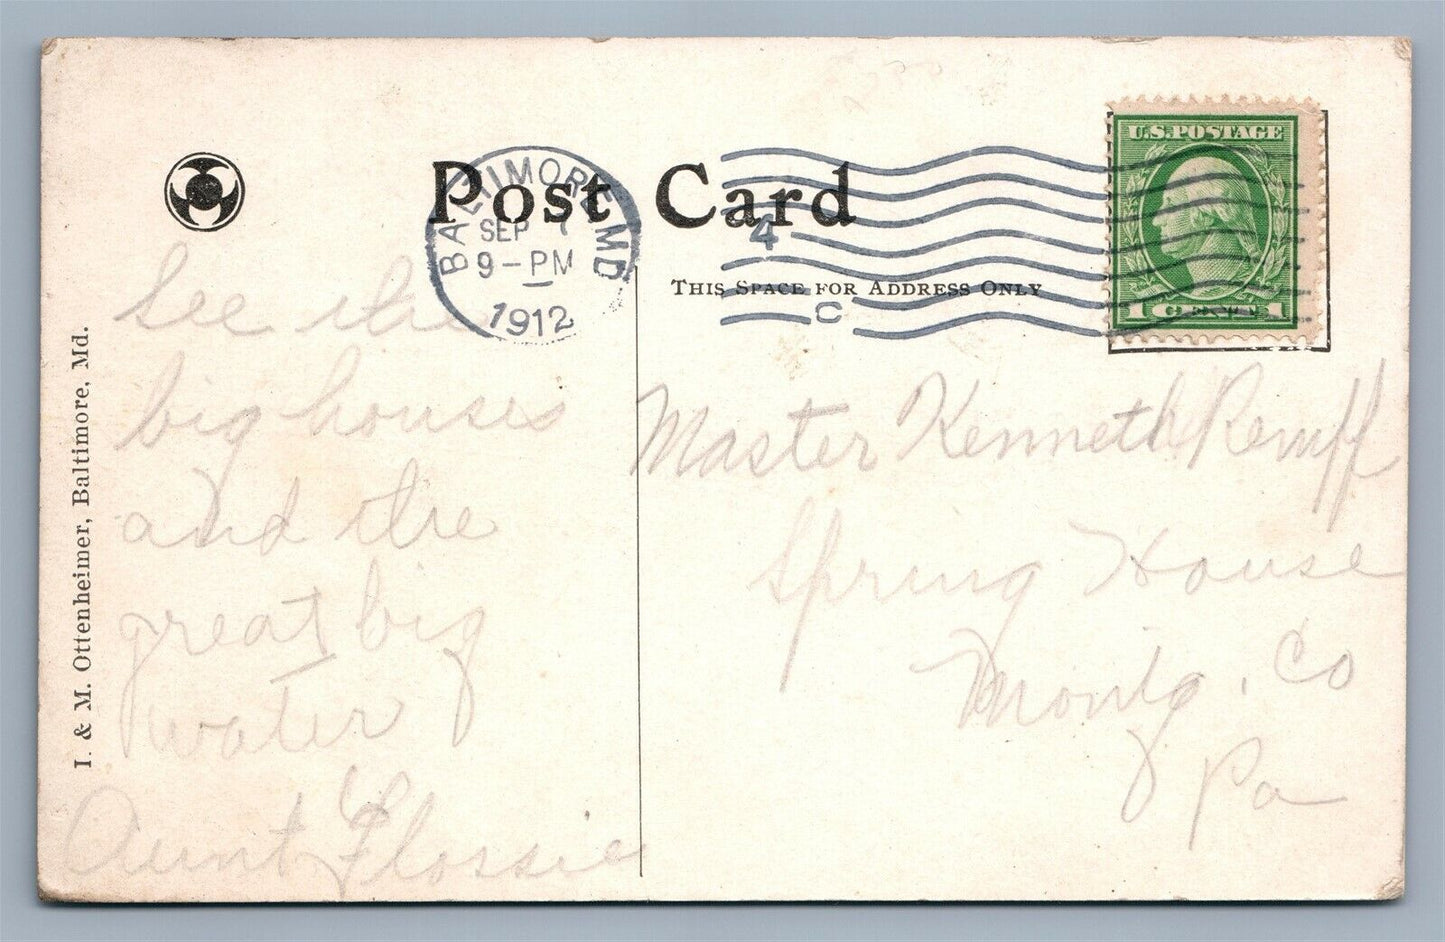 Post Card
BALTIMORE MD
SEP 7
9-PM
1912
4
C
U.S. POSTAGE
1 CENT 1
THIS SPACE FOR ADDRESS ONLY
I. & M. Ottenheimer, Baltimore, Md.
See the
big houses
and the
great big
water
Aunt Flossie
Master Kenneth Rempff
Spring House
Montg. Co
Pa